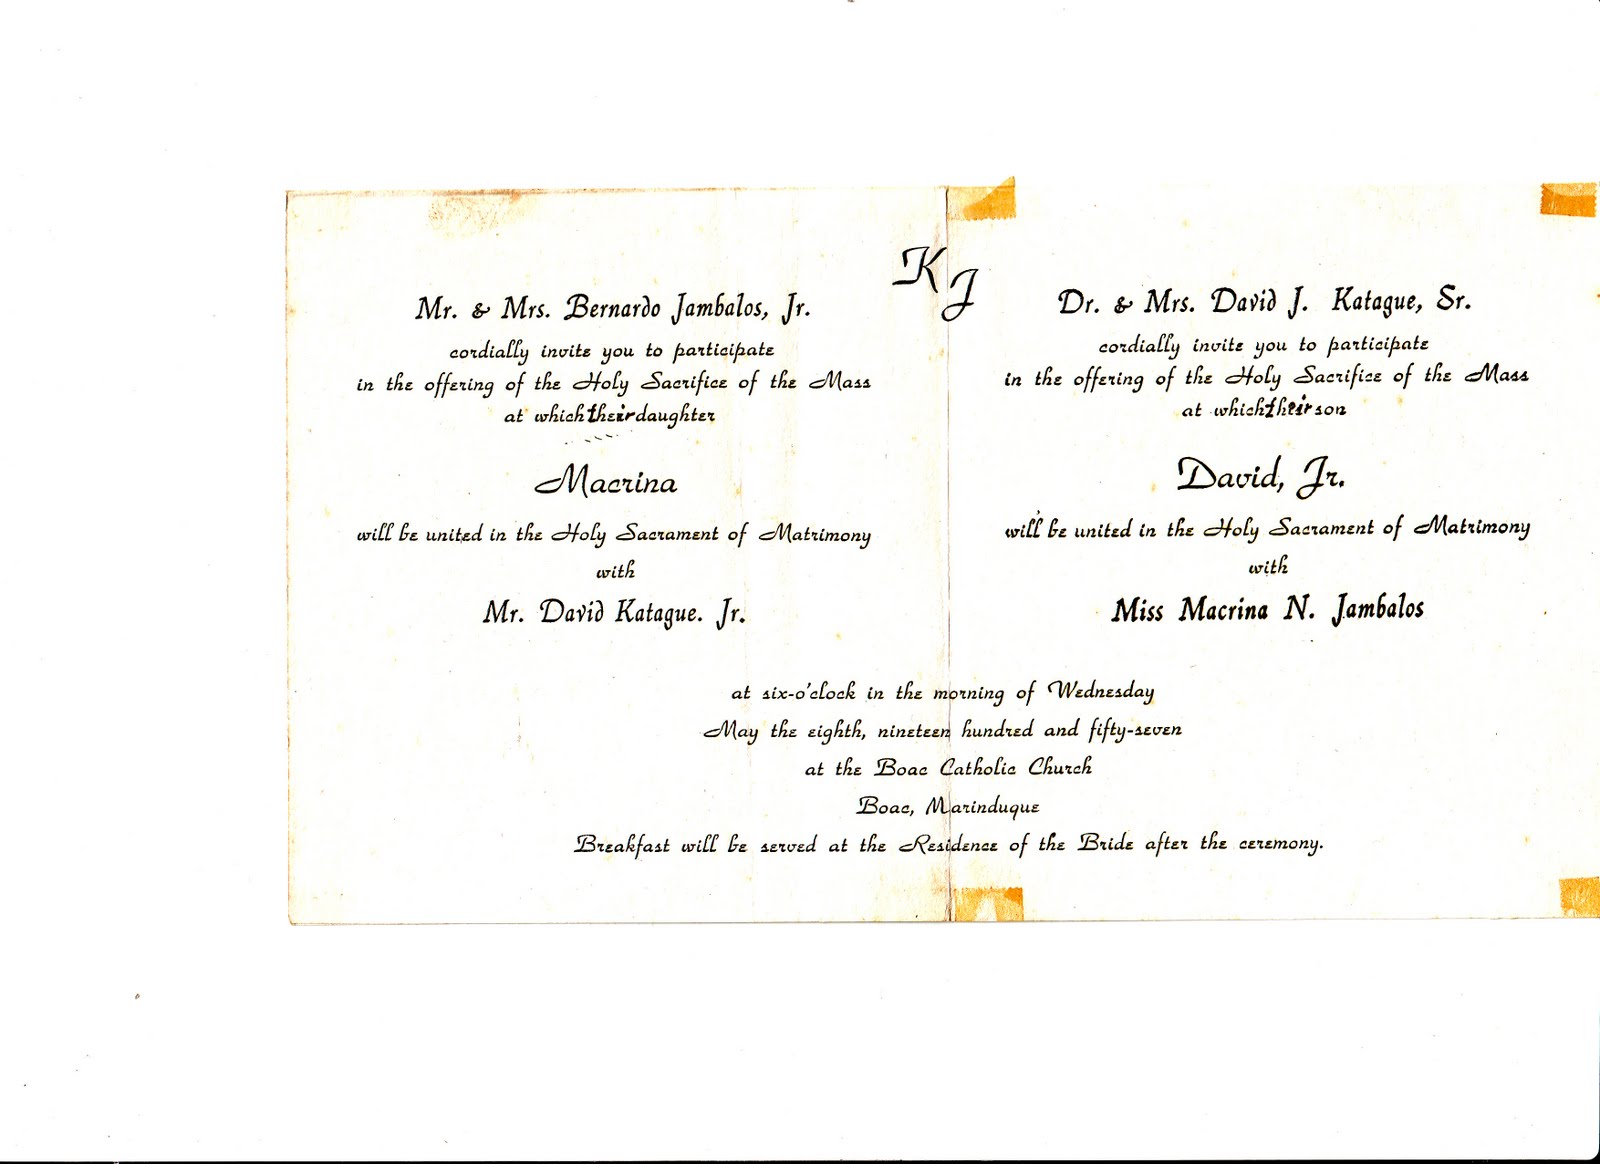 K J
Mr. & Mrs. Bernardo Jambalos, Jr.
cordially invite you to participate
in the offering of the Holy Sacrifice of the Mass
at which their daughter
Macrina
will be united in the Holy Sacrament of Matrimony
with
Mr. David Katague. Jr.
Dr. & Mrs. David J. Katague, Sr.
cordially invite you to participate
in the offering of the Holy Sacrifice of the Mass
at which their son
David, Jr.
will be united in the Holy Sacrament of Matrimony
with
Miss Macrina N. Jambalos
at six-o'clock in the morning of Wednesday
May the eighth, nineteen hundred and fifty-seven
at the Boac Catholic Church
Boac, Marinduque
Breakfast will be served at the Residence of the Bride after the ceremony.